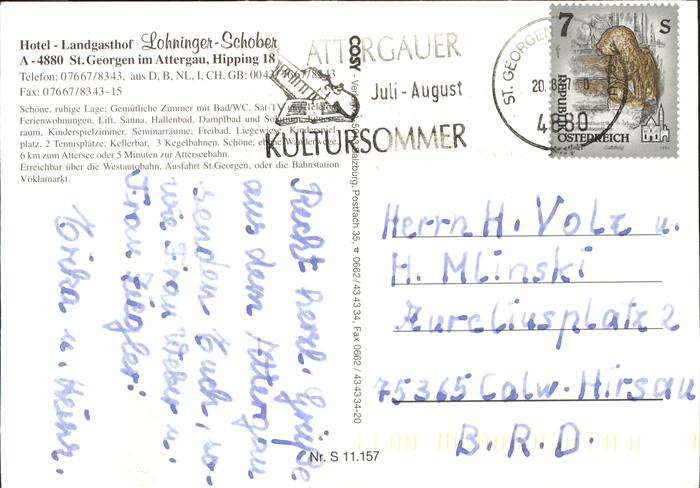 Hotel - Landgasthof Lohninger-Schober
A - 4880 St. Georgen im Attergau, Hipping 18
Telefon: 07667/8343, aus D, B, NL, I, CH, GB: 0043/7667/8343
Fax: 07667/8343-15
Schöne, ruhige Lage; Gemütliche Zimmer mit Bad/WC, Sat-TV und Telefon,
Ferienwohnungen, Lift, Sauna, Hallenbad, Dampfbad und
raum, Kinderspielzimmer, Seminarräume; Freibad, Liegewiese, Kinderspiel-
platz, 2 Tennisplätze; Kellerbar, 3 Kegelbahnen. Schöne, ebene Wanderwege,
6 km zum Attersee oder 5 Minuten zur Atterseebahn.
Erreichbar über die Westautobahn, Ausfahrt St.Georgen, oder die Bahnstation
Vöklamarkt.
ATTERGAUER
Juli - August
KULTURSOMMER
ST. GEORGEN
20. 8.
4880
7 S
REPUBLIK
ÖSTERREICH
COSY - Verlag, Salzburg, Postfach 35, ☎ 0662/43 43 34, Fax 0662/43 4334-20
Recht herzl. Grüße
aus dem Attergau
senden Euch, so-
wie Frau Weber u.
Frau Ziegler.
Erika u. Heinr.
Herrn H. Volz u.
H. Mlinski
Aureliusplatz 2
75365 Calw-Hirsau
B.R.D.
Nr. S 11.157